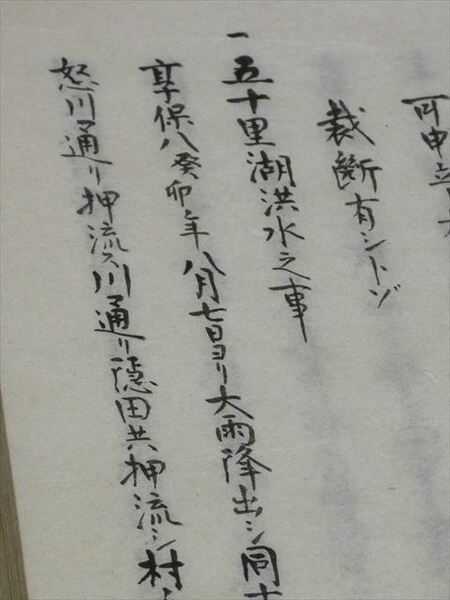 可申立
裁断有シトゾ
一五十里湖洪水之事
享保八癸卯年八月七日ヨリ大雨降出シ同十
怒川通リ押流ス川通リ隠田共押流シ村